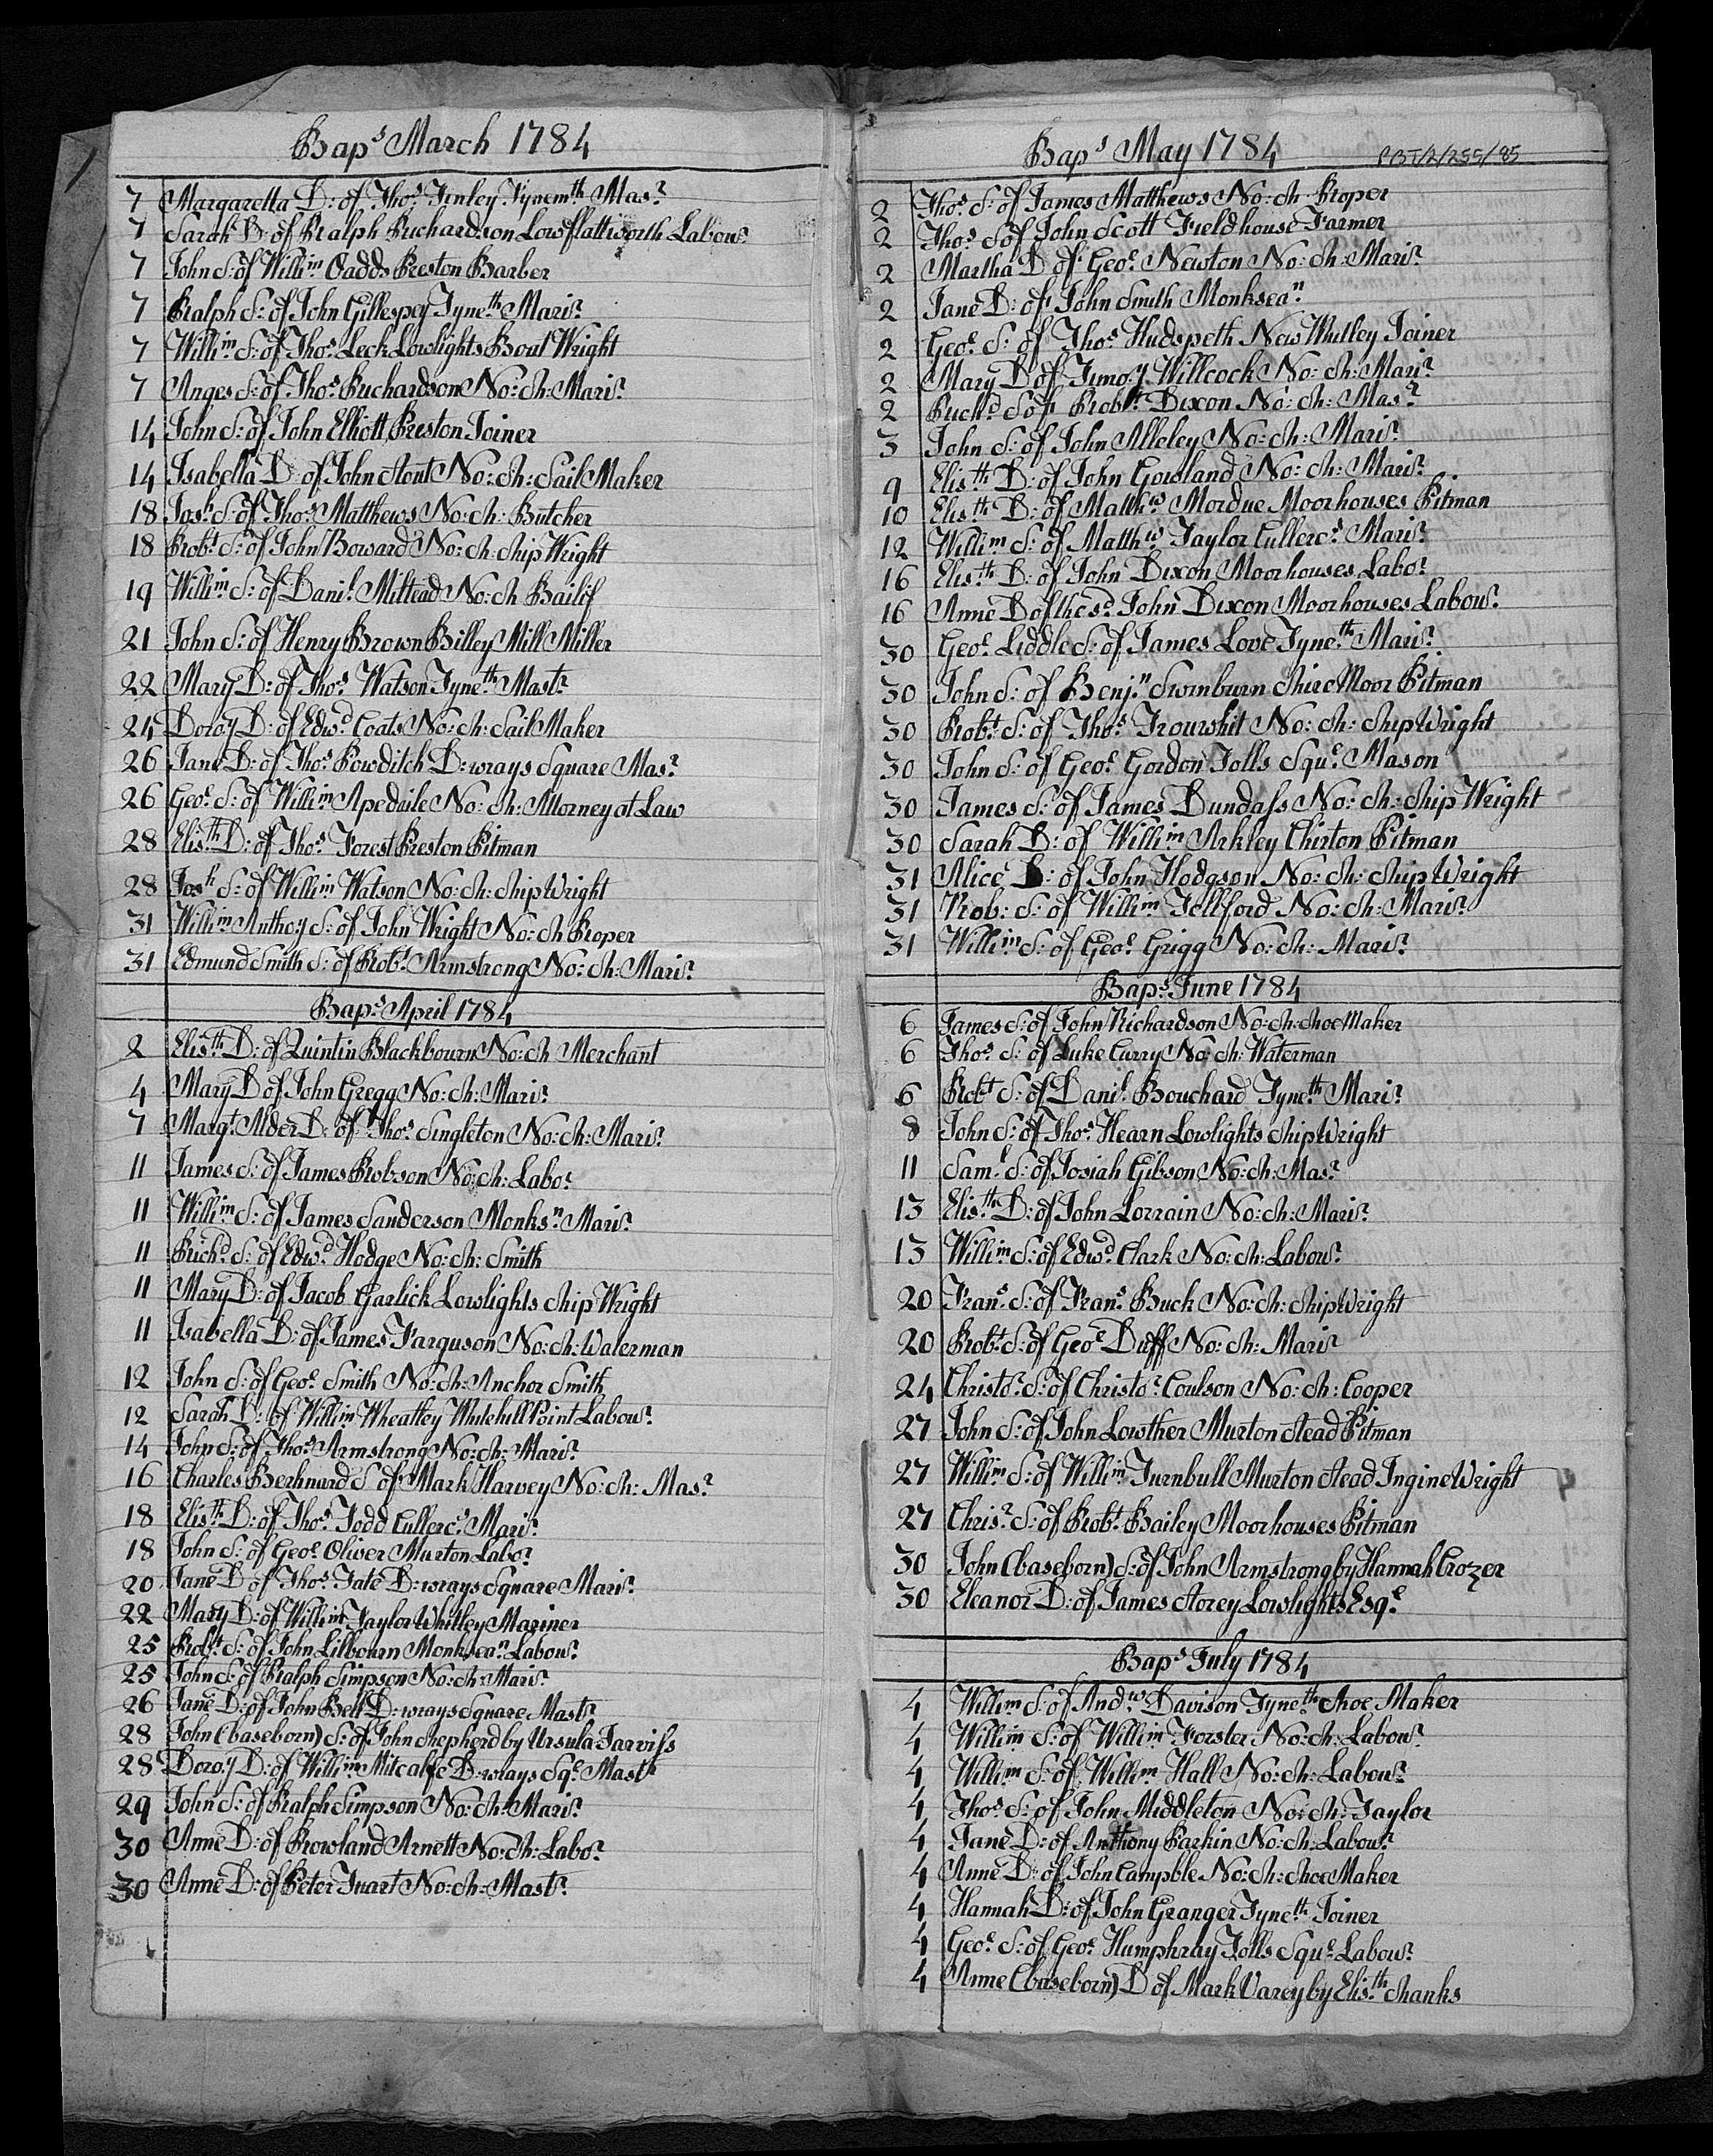 Baps March 1784
7 Margaretta D: of Thos Finley Tynemth Masr
7 Sarah D: of Ralph Richardson Lowflattworth Labour
7 John S: of Willim Cadds Preston Barber
7 Ralph S: of John Gillespey Tyneth Marir
7 Willim S: of Thos Leck Lowlights Boat Wright
7 Anges S: of Thos Richardson No: Sh: Marir
14 John S: of John Elliott Preston Joiner
14 Isabella D: of John Stout No: Sh: Sail Maker
18 Josh S: of Thos Matthews No: Sh: Butcher
18 Robt S: of John Boward No: Sh: Ship Wright
19 Willim S: of Danil Miltead No: Sh Bailif
21 John S: of Henry Brown Billey Mill Miller
22 Mary D: of Thos Watson Tyneth Mastr
24 Doroy D: of Edwd Coats No: Sh: Sail Maker
26 Jane D: of Thos Bowditch D: wrays Square Masr
26 Geoe S: of Willim Apedaile No: Sh: Attorney at Law
28 Elisth D: of Thos Forest Preston Pitman
28 Josh S: of Willim Watson No: Sh: Ship Wright
31 Willim Anthoy S: of John Wright No: Sh Roper
31 Edmund Smith S: of Robt Armstrong No: Sh: Marir
Baps April 1784
2 Elisth D: of Quintin Blackbourn No: Sh Merchant
4 Mary D of John Gregg No: Sh: Marir
7 Margt Alder D: of Thos Singleton No: Sh: Marir
11 James S: of James Robson No: Sh: Labor
11 Willim S: of James Sanderson Monksn Marir
11 Richd S: of Edwd Hodge No: Sh: Smith
11 Mary D: of Jacob Garlick Lowlights Ship Wright
11 Isabella D: of James Farguson No: Sh: Waterman
12 John S: of Geoe Smith No: Sh: Anchor Smith
12 Sarah D: of Willim Wheatley Whitehill Point Labour
14 John S: of Thos Armstrong No: Sh: Marir
16 Charles Berhnard S of Mark Harvey No: Sh: Masr
18 Elisth D: of Thos Todd Cullercs Marir
18 John S: of Geoe Oliver Murton Labor
20 Jane D of Thos Tate D: wrays Square Marir
22 Mary D: of Willim Taylor Whitley Mariner
25 Robt S: of John Lilbourn Monksean Labour
25 John S: of Ralph Simpson No: Sh: Marir
26 Jane D: of John Bell D: wrays Square Mastr
28 John (baseborn) S: of John Shepherd by Ursula Jarviss
28 Doroy D: of Willim Mitcalfe D: wrays Sqe Mastr
29 John S: of Ralph Simpson No: Sh: Marir
30 Anne D: of Rowland Arnett No: Sh: Labor
30 Anne D: of Peter Tuart No: Sh: Mastr
Baps May 1784
2 Thos S: of James Matthews No: Sh Roper
2 Thos S of John Scott Fieldhouse Farmer
2 Martha D of Geoe Newton No: Sh: Marir
2 Jane D: of John Smith Monksean
2 Geoe S: of Thos Hudspeth New Whitley Joiner
2 Mary D of Timoy Willcock No: Sh: Marir
2 Richd S of Robt Dixon No: Sh: Masr
3 John S: of John Alleley No: Sh: Marir
9 Elisth D: of John Gowland No: Sh: Marir
10 Elisth D: of Matthw Mordue Moorhouses Pitman
12 Willim S: of Matthw Taylor Cullercs Marir
16 Elisth D: of John Dixon Moorhouses Labor
16 Anne D of the sd John Dixon Moorhouses Labour
30 Geoe Liddle S: of James Love Tyneth Marir
30 John S: of Benjn Swinburn Shire Moor Pitman
30 Robt S: of Thos Trourwhit No: Sh: Ship Wright
30 John S: of Geoe Gordon Tolls Sque Mason
30 James S: of James Dundass No: Sh: Ship Wright
30 Sarah D: of Willim Arkley Chirton Pitman
31 Alice D: of John Hodgson No: Sh: Ship Wright
31 Rob: S: of Willim Tellford No: Sh: Marir
31 Willim S: of Geoe Grigg No: Sh: Marir
Baps June 1784
6 James S: of John Richardson No: Sh: Shoe Maker
6 Thos S: of Luke Curry No: Sh: Waterman
6 Robt S: of Danil Bouchard Tyneth Marir
8 John S: of Thos Hearn Lowlights Ship Wright
11 Saml S: of Josiah Gibson No: Sh: Masr
13 Elisth D: of John Lorrain No: Sh: Marir
13 Willim S: of Edwd Clark No: Sh: Labour
20 Frans S: of Frans Buck No: Sh: Ship Wright
20 Robt S: of Geoe Duff No: Sh: Marir
24 Christor S: of Christor Coulson No: Sh: Cooper
27 John S: of John Lowther Murton Stead Pitman
27 Willim S: of Willim Turnbull Murton Stead Ingine Wright
27 Chrisr S: of Robt Bailey Moorhouses Pitman
30 John (baseborn) S: of John Armstrong by Hannah Crozer
30 Eleanor D: of James Storey Lowlights Esqe
Baps July 1784
4 Willim S: of Andw Davison Tyneth Shoe Maker
4 Willim S: of Willim Forster No: Sh: Labour
4 Willim S: of Willim Hall No: Sh: Labour
4 Thos S: of John Middleton No: Sh: Taylor
4 Jane D: of Anthony Parkin No: Sh: Labour
4 Anne D: of John Campble No: Sh: Shoe Maker
4 Hannah D: of John Granger Tyneth Joiner
4 Geoe S: of Geoe Humphray Tolls Sque Labour
4 Anne (baseborn) D of Mark Varey by Elisth Shanks